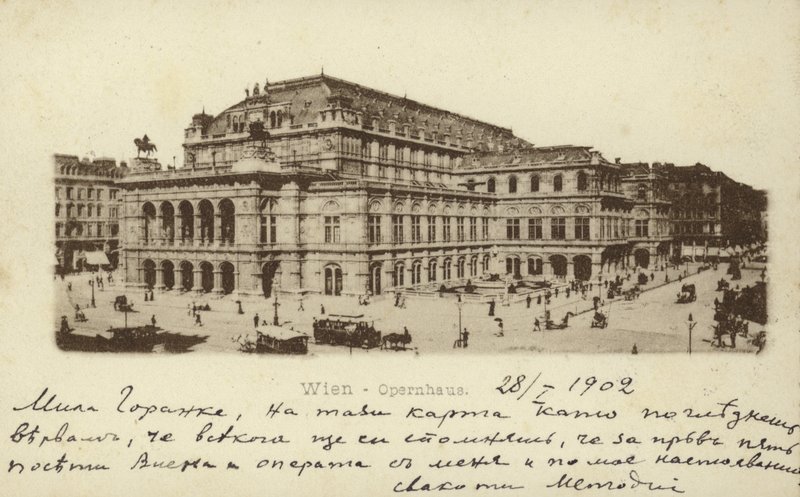 Wien - Opernhaus. 28/I 1902
Мила Горанке, на тази карта като погледнешь
вѣрвамъ, че всѣкога ще си спомняшь, че за пръвъ пѫть
посѣти Виена и операта съ меня и по мое настояванне
Методий